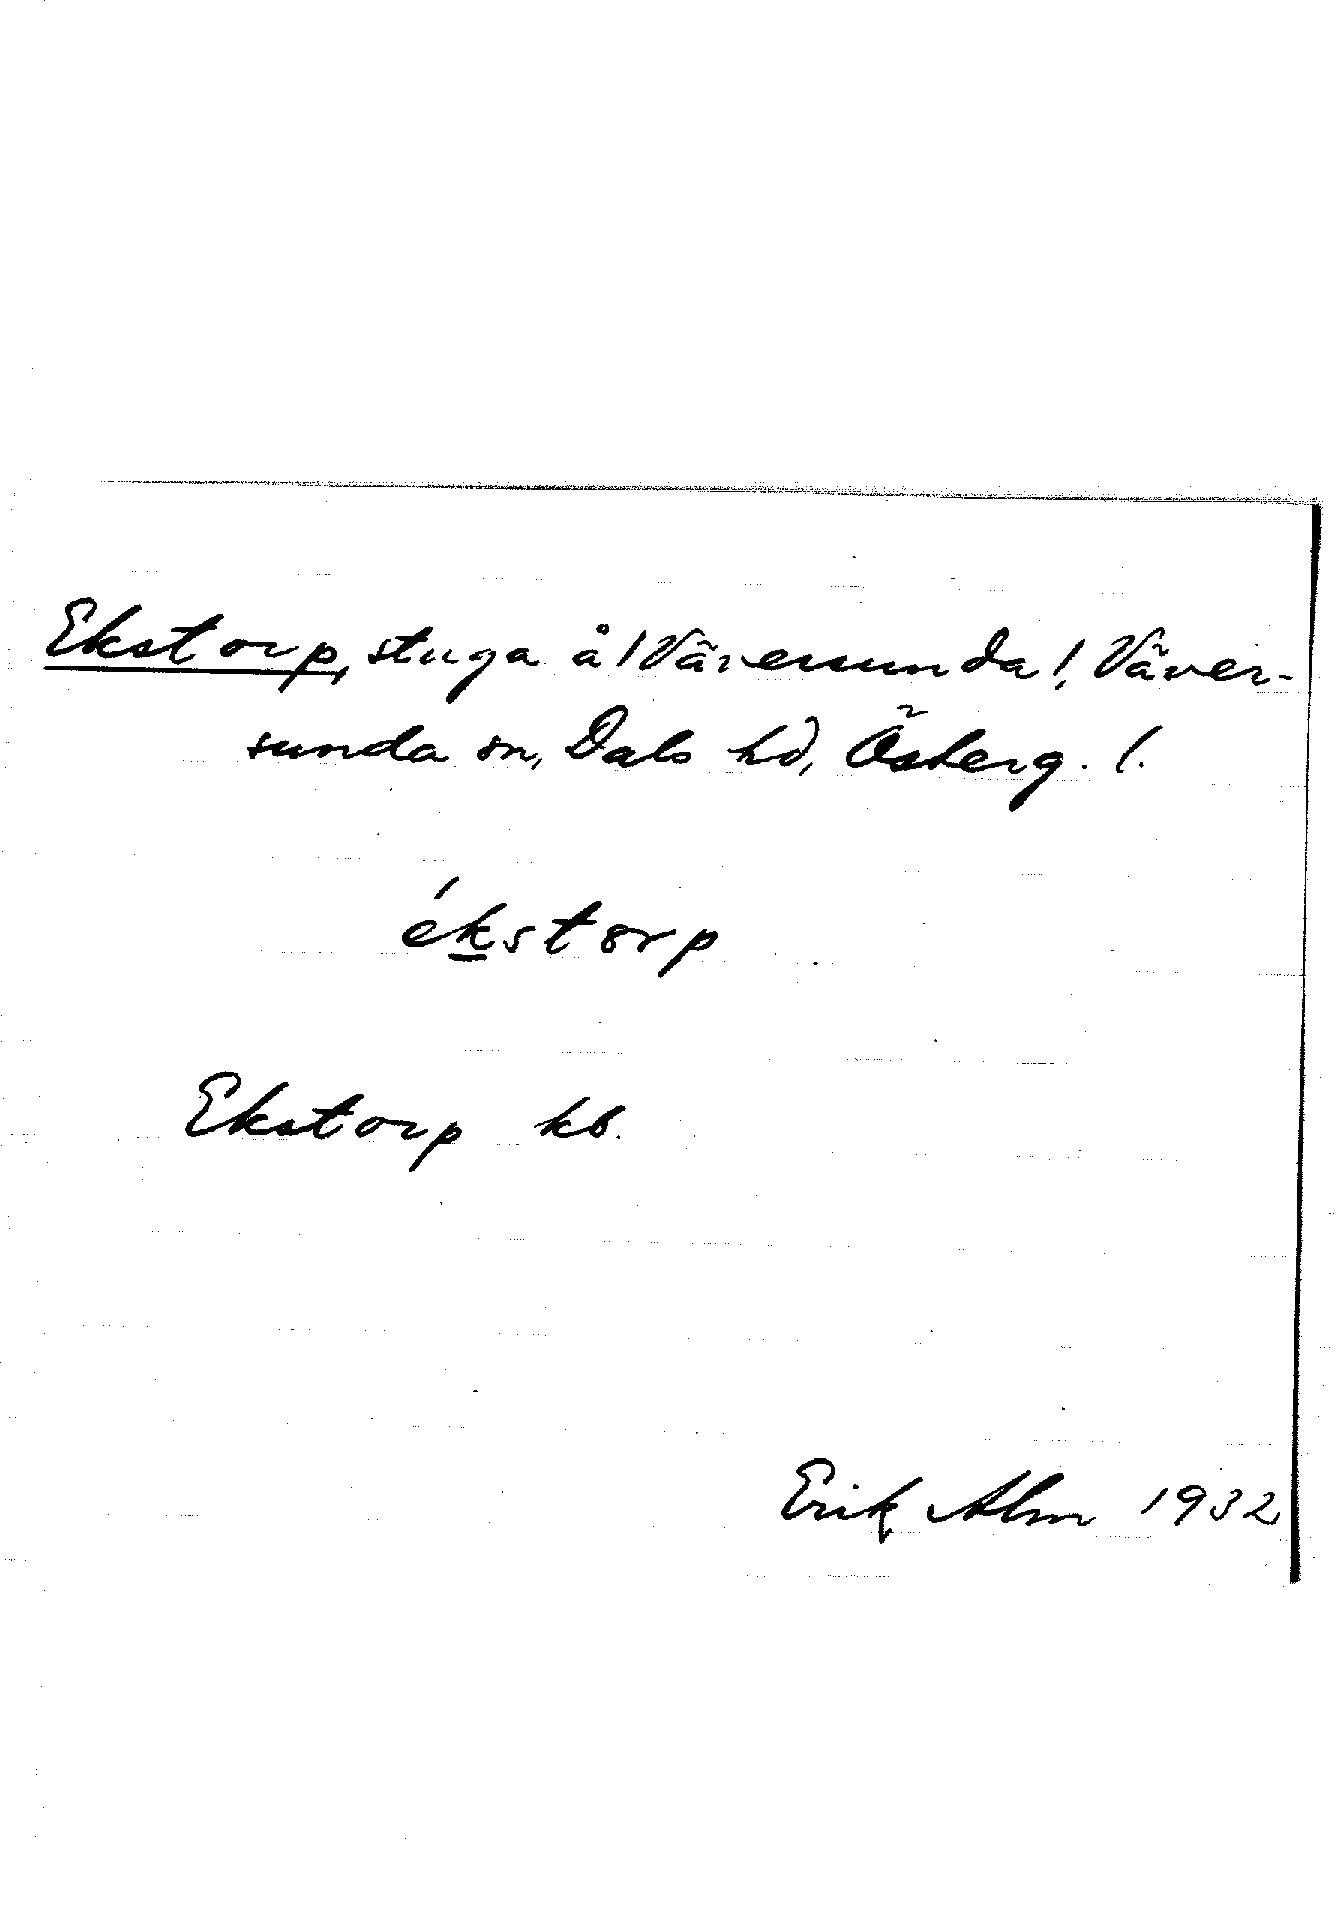 Ekstorp, stuga å /Väversunda/, Väver-
sunda sn, Dals hd, Österg. l.
ékstorp
Ekstorp kb.
Erik Alm 1932